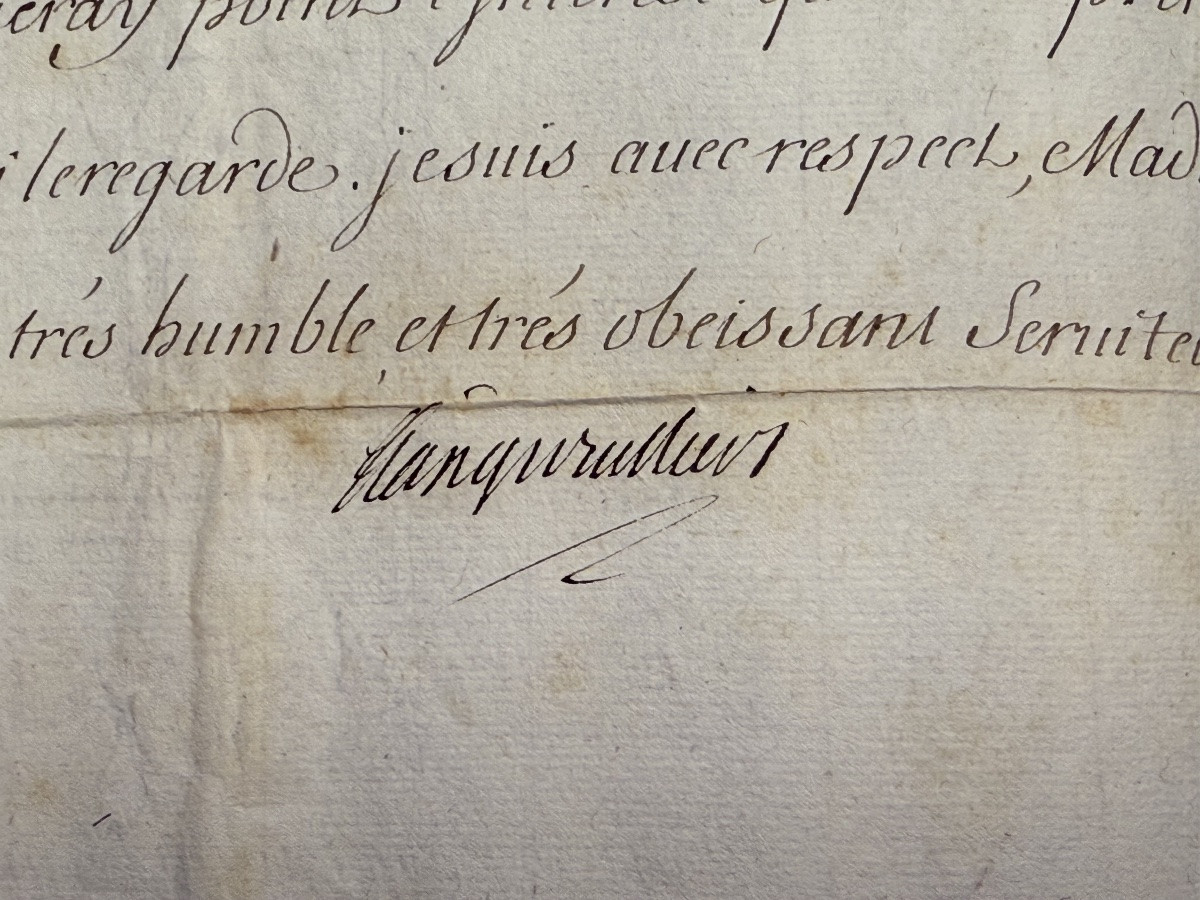 point
leregarde. jesuis auec respect, Mad
trés humble et trés obeissant Seruiteu